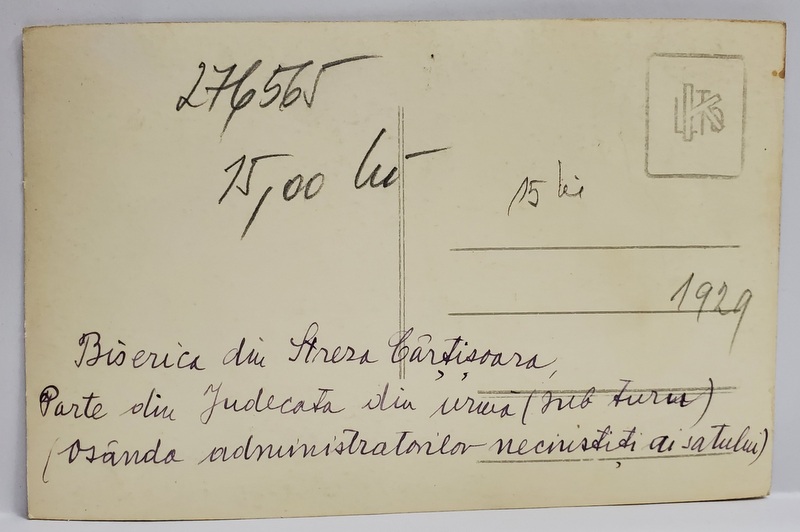 276565
15,00 lei
15 lei
1929
Biserica din Streza Cârțișoara,
Parte din Judecata din urmă (sub turn)
(Osânda administratorilor necinstiți ai satului)